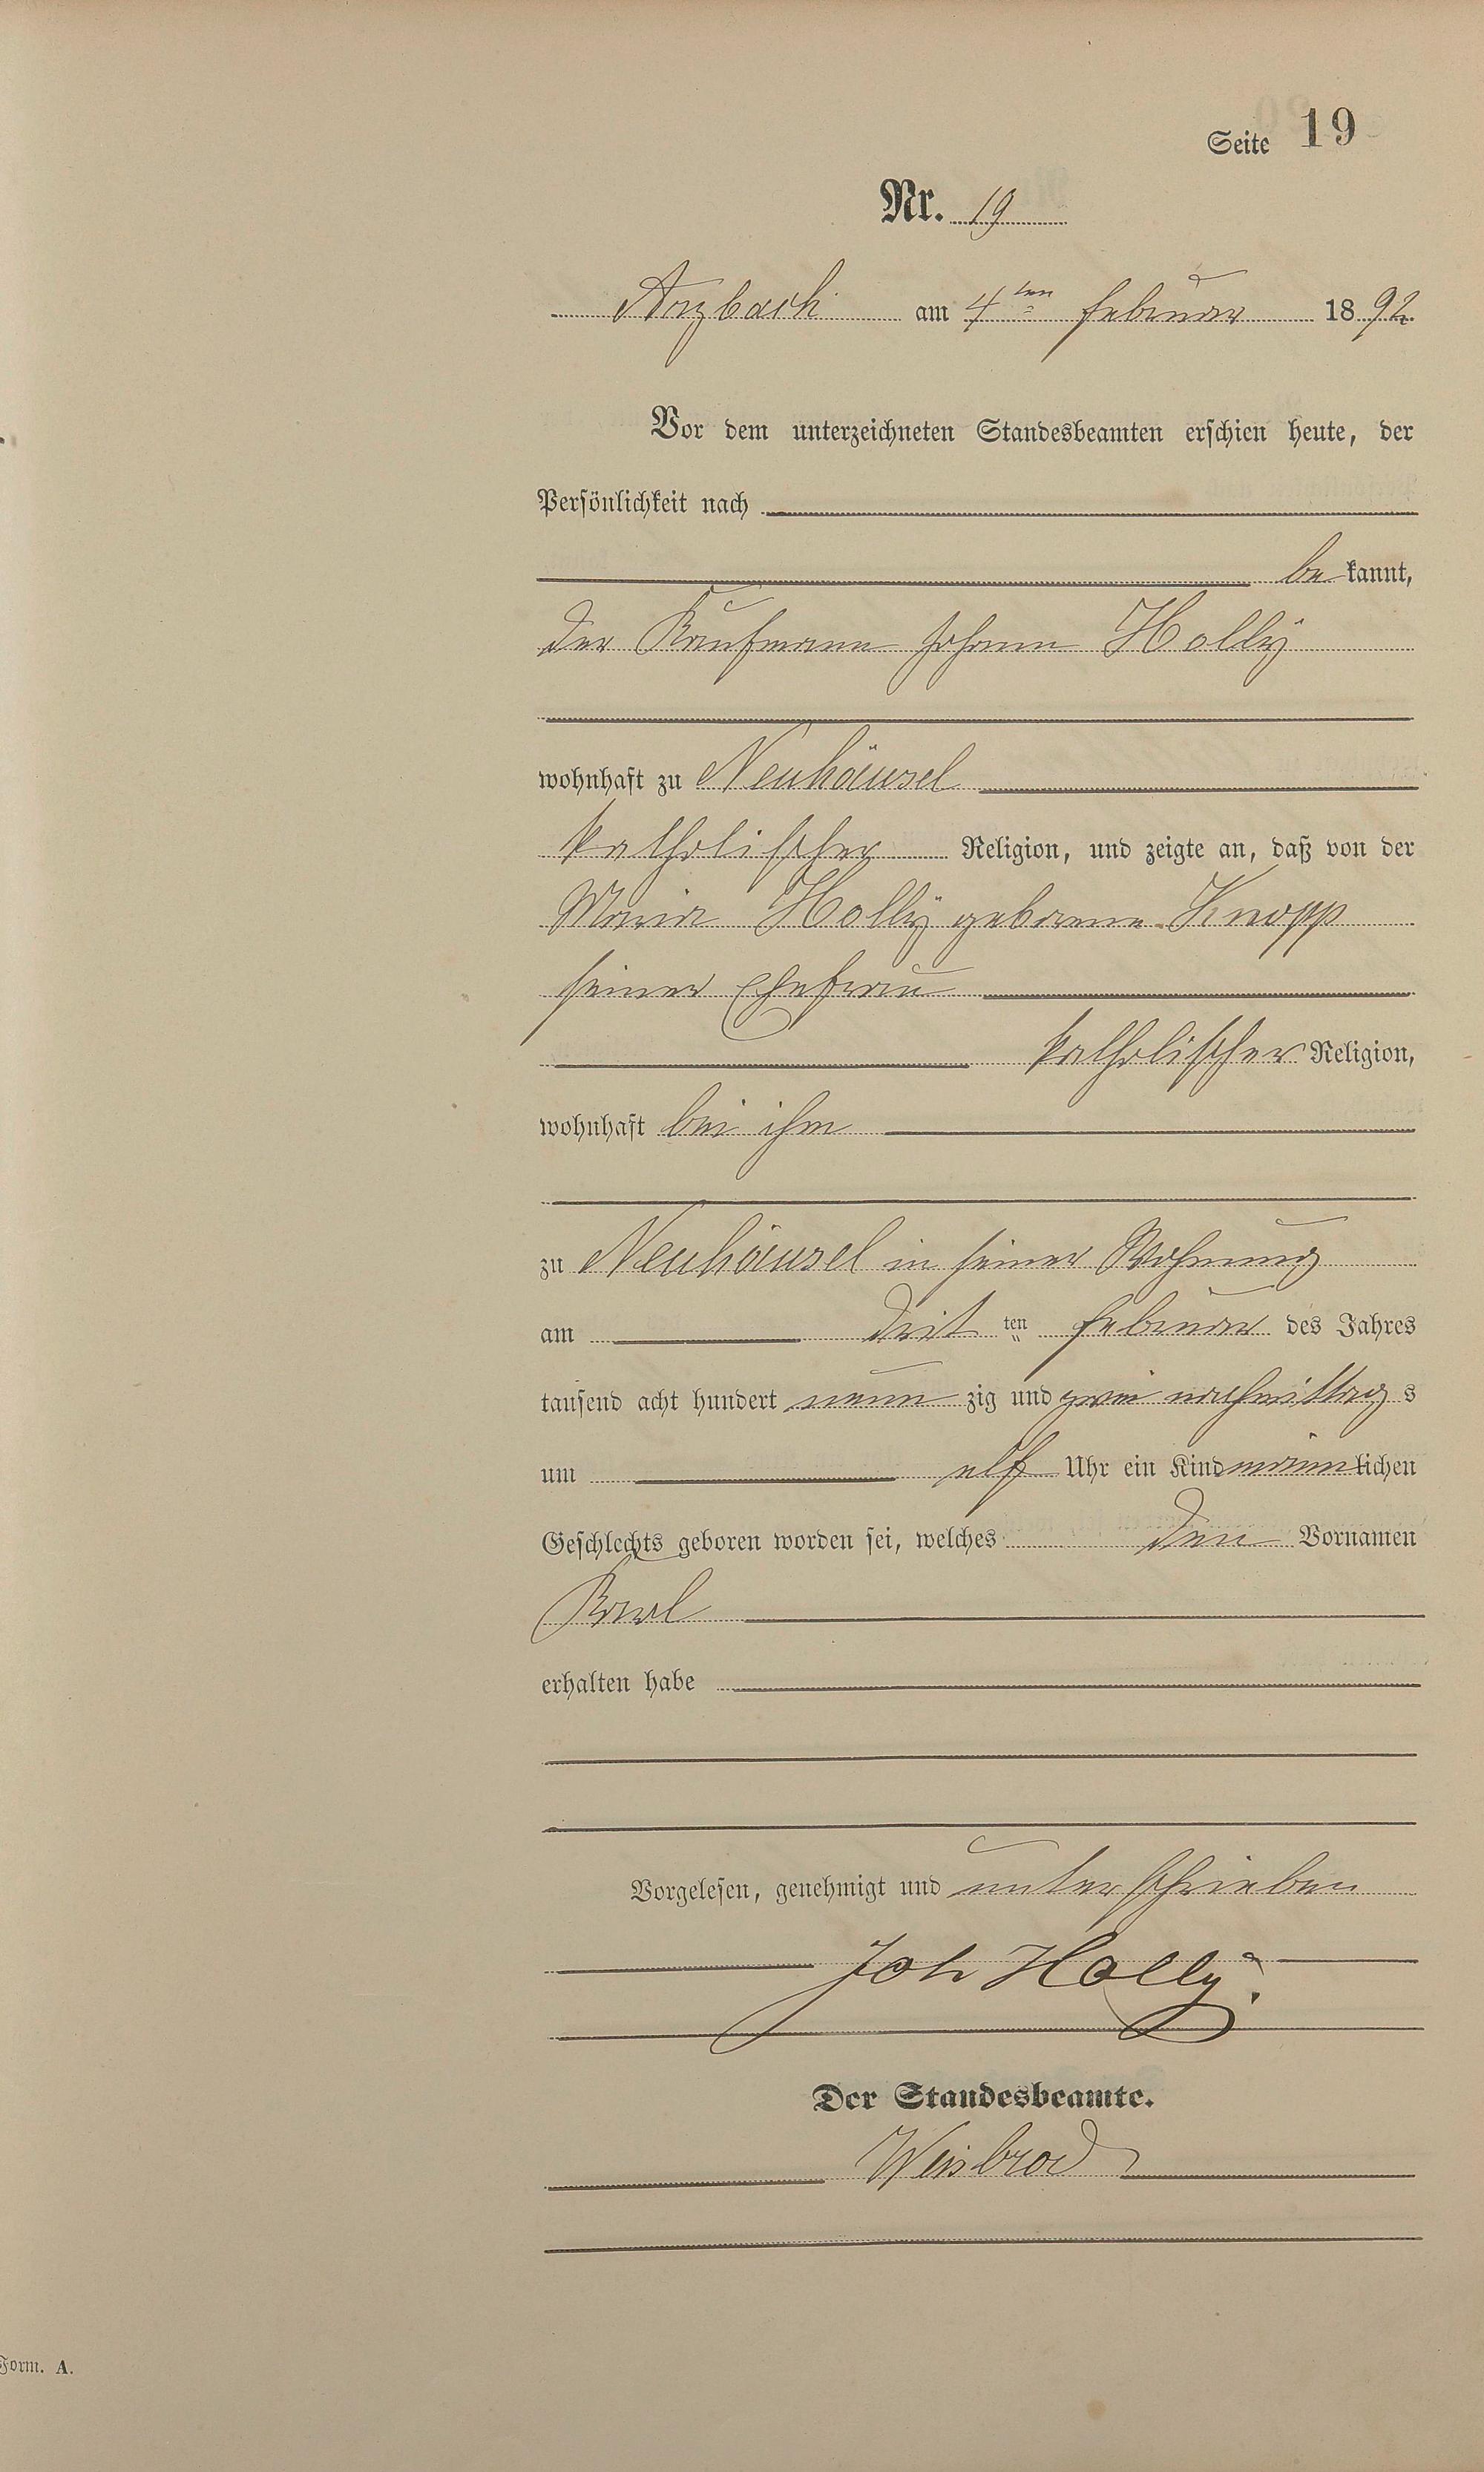 Seite 19
Nr. 19
Arzbach am 4ten Februar 1892
Vor dem unterzeichneten Standesbeamten erschien heute, der
Persönlichkeit nach
bekannt,
der Kaufmann Johann Hollÿ
wohnhaft zu Neuhäusel
katholischer Religion, und zeigte an, daß von der
Maria Hollÿ geborene Knopp
seiner Ehefrau
katholischer Religion,
wohnhaft bei ihm
zu Neuhäusel in seiner Wohnung
am dritten Februar des Jahres
tausend acht hundert neunzig und zwei nachmittags
um elf Uhr ein Kind männlichen
Geschlechts geboren worden sei, welches den Vornamen
Karl
erhalten habe
Vorgelesen, genehmigt und unterschrieben
Joh Holly.
Der Standesbeamte.
Weisbrod
Form. A.